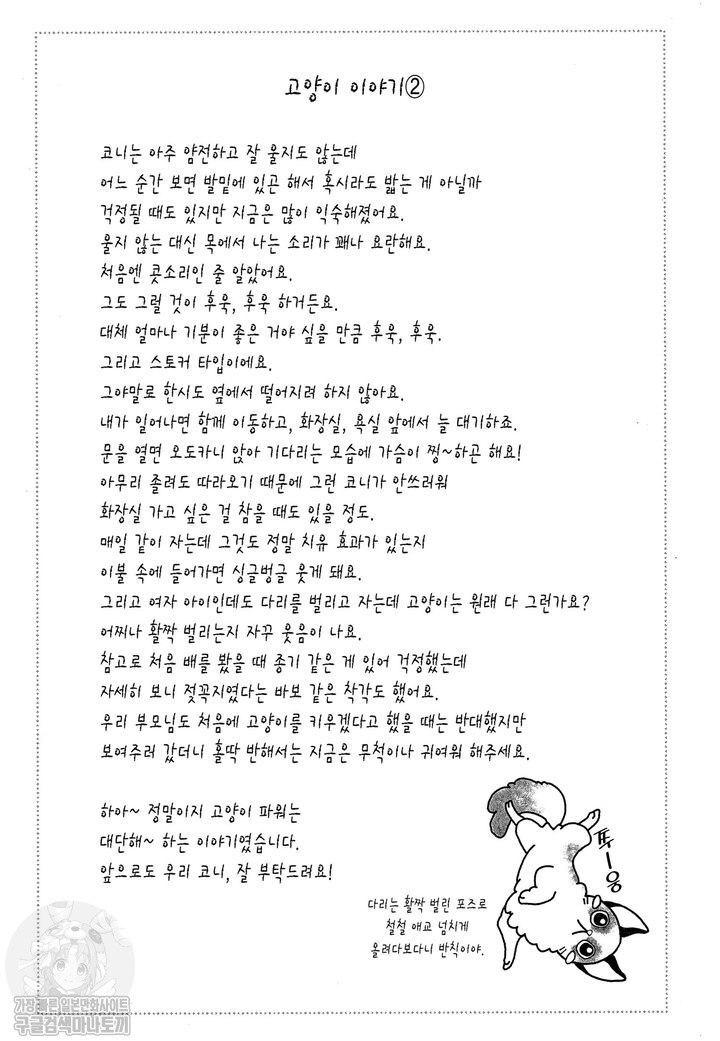 고양이 이야기②
코니는 아주 얌전하고 잘 울지도 않는데
어느 순간 보면 발밑에 있곤 해서 혹시라도 밟는 게 아닐까
걱정될 때도 있지만 지금은 많이 익숙해졌어요.
울지 않는 대신 목에서 나는 소리가 꽤나 요란해요.
처음엔 콧소리인 줄 알았어요.
그도 그럴 것이 후욱, 후욱 하거든요.
대체 얼마나 기분이 좋은 거야 싶을 만큼 후욱, 후욱.
그리고 스토커 타입이에요.
그야말로 한시도 옆에서 떨어지려 하지 않아요.
내가 일어나면 함께 이동하고, 화장실, 욕실 앞에서 늘 대기하죠.
문을 열면 오도카니 앉아 기다리는 모습에 가슴이 찡~하곤 해요!
아무리 졸려도 따라오기 때문에 그런 코니가 안쓰러워
화장실 가고 싶은 걸 참을 때도 있을 정도.
매일 같이 자는데 그것도 정말 치유 효과가 있는지
이불 속에 들어가면 싱글벙글 웃게 돼요.
그리고 여자 아이인데도 다리를 벌리고 자는데 고양이는 원래 다 그런가요?
어찌나 활짝 벌리는지 자꾸 웃음이 나요.
참고로 처음 배를 봤을 때 종기 같은 게 있어 걱정했는데
자세히 보니 젖꼭지였다는 바보 같은 착각도 했어요.
우리 부모님도 처음에 고양이를 키우겠다고 했을 때는 반대했지만
보여주러 갔더니 홀딱 반해서는 지금은 무척이나 귀여워 해주세요.
하아~ 정말이지 고양이 파워는
대단해~ 하는 이야기였습니다.
앞으로도 우리 코니, 잘 부탁드려요!
뿌ー응
다리는 활짝 벌린 포즈로
철철 애교 넘치게
올려다보다니 반칙이야.
가장 빠른 일본만화사이트
구글검색마나토끼